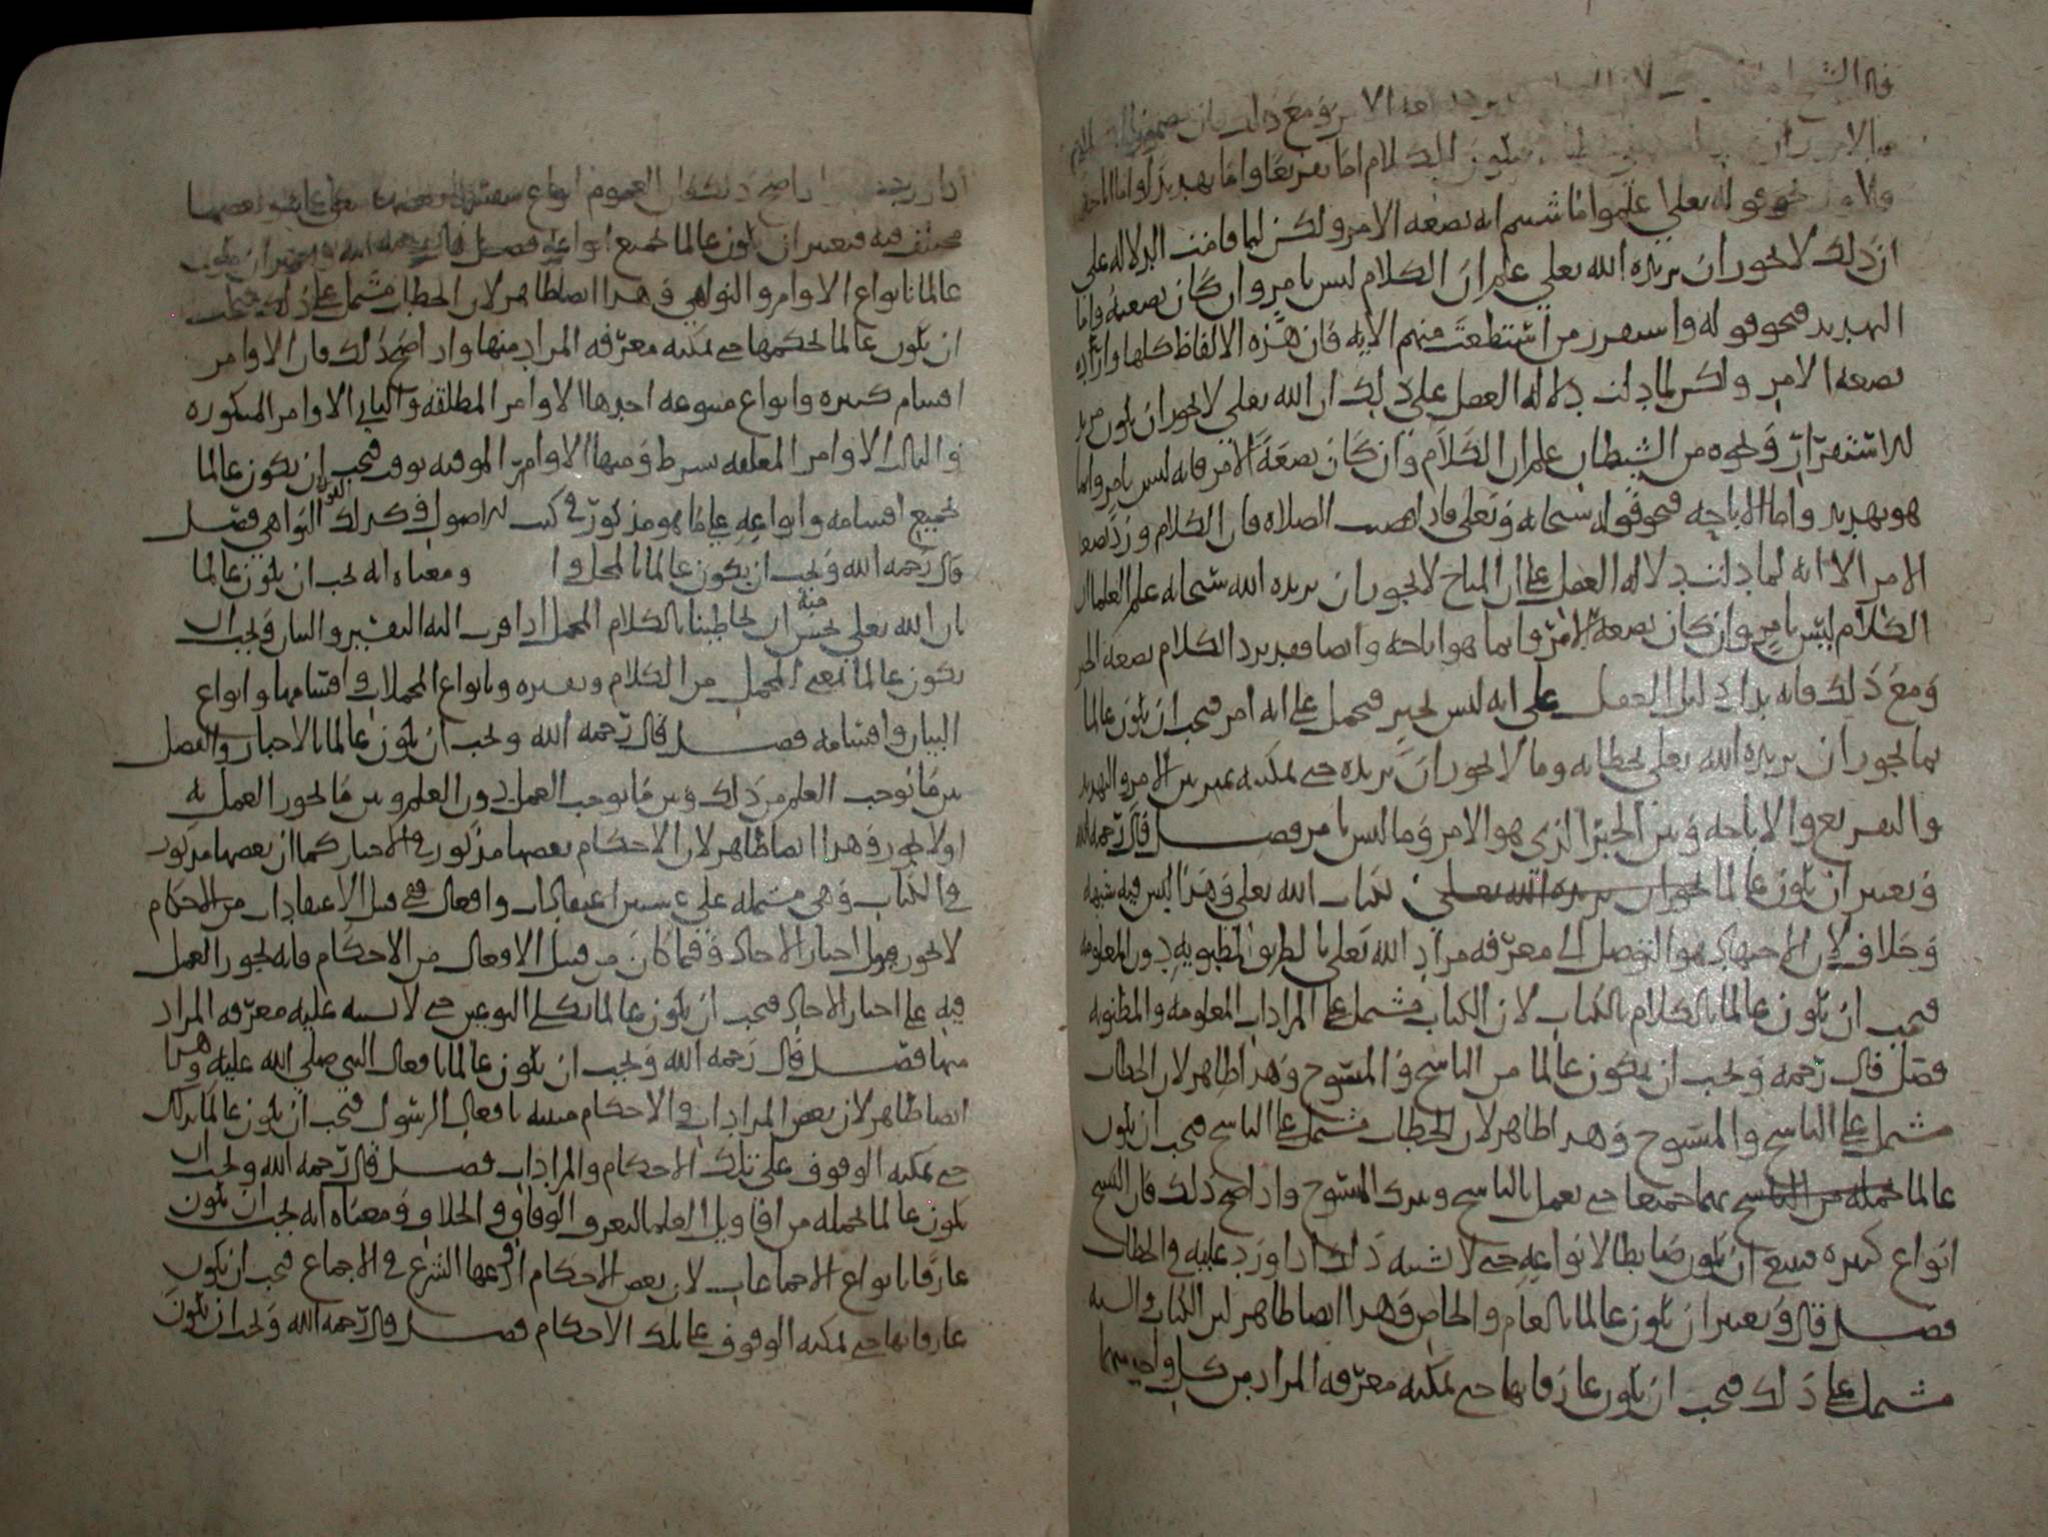 ومع ذلك فان
والامر
ولا نحو قوله تعلى اعلموا ما شيتم انه بصيغه الامر ولكن لما قامت الدلاله على
ان ذلك لا يجوز ان يريده الله تعلى علم ان الكلام ليس بامر وان كان بصيغته واما
التهديد فنحو قوله واستفزز من استطعت منهم الايه فان هذه الالفاظ كلها وارده
بصيغه الامر ولكن لما دلت دلاله العقل على ذلك ان الله تعلى لا يجوز ان يكون مريد
للاستفزاز ونحوه من الشيطان علم ان الكلام وان كان بصيغه الامر فانه ليس بامر وانما
هو تهديد واما الاباحه فنحو قوله سبحانه وتعلى فاذا قضيت الصلاه فان الكلام ورد بصيغه
الامر الا انه لما دلت دلاله العقل على ان المباح لا يجوز ان يريده الله سبحانه علم العلما ان
الكلام ليس بامر وان كان بصيغه الامر وانما هو اباحه وايضا فقد يرد الكلام بصيغه الخبر
ومع ذلك فانه يدل دليل العقل على انه ليس بخبر فيحمل على انه امر فيجب ان يكون عالما
بما يجوز ان يريده الله تعلى بخطابه وما لا يجوز ان يريده حتى يمكنه تمييز بين الامر والتهديد
والتقريع والاباحه وبين الخبر الذي هو الامر وما ليس بامر فصل قال رحمه الله
ويعتبر ان يكون عالما يجوز ان يريده الله تعلى بكتاب الله تعلى وهذا ليس فيه شبهه
وخلاف لان الاجتهاد هو التوصل الى معرفه مراد الله تعلى بالطريق المظنونه دون المعلومه
فيجب ان يكون عالما بالكلام بالكتاب لان الكتاب مشتمل على المرادات المعلومه والمظنونه
فصل قال رحمه ويجب ان يكون عالما من الناسخ والمنسوخ وهذا ظاهر لان الخطاب
مشتمل على الناسخ والمنسوخ وهذا ظاهر لان الخطاب مشتمل على الناسخ فيجب ان يكون
عالما بجمله من الناسخ بهما جميعا حتى يعمل بالناسخ ويترك المنسوخ واذا صح ذلك فان النسخ
انواع كثيره فينبغي ان يكون ضابطا لانواعه حتى لا يشتبه ذلك اذا ورد عليه في الخطاب
فصل قال ويعتبر ان يكون عالما بالعام والخاص وهذا ايضا ظاهر لان الكتاب والسنه
مشتمل على ذلك فيجب ان يكون عارفا بهما حتى يمكنه معرفه المراد من كل واحد منهما
واذا صح ذلك فان العموم انواع
مختلف فيه فيعتبر ان يكون عالما بجميع انواعه فصل قال رحمه الله ويعتبر ان يكون
عالما بانواع الاوامر والنواهي وهذا ايضا ظاهر لان الخطاب مشتمل على ذلك فيجب
ان يكون عالما بحكمها حتى يمكنه معرفه المراد منها واذا صح ذلك فان الاوامر
اقسام كثيره وانواع متنوعه احدها الاوامر المطلقه والثاني الاوامر المتكرره
والثالث الاوامر المعلقه بشرط ومنها الاوامر الموقته بوقت فيجب ان يكون عالما
بجميع اقسامه وانواعه على ما هو مذكور في كتب الاصول وكذلك القول في النواهي فصل
قال رحمه الله ويجب ان يكون عالما بالمجمل وا ومعناه انه يجب ان يكون عالما
بان الله تعلى يحسن منه ان يخاطبنا بالكلام المجمل اذا قرب اليه التفسير والبيان ويجب ان
يكون عالما بمعنى المجمل من الكلام وتفسيره وبانواع المجملات واقسامها وانواع
البيان واقسامه فصل قال رحمه الله ويجب ان يكون عالما بالاخبار والفصل
بين ما يوجب العلم من ذلك وبين ما يوجب العمل دون العلم وبين ما يجوز العمل به
او لا يجوز وهذا ايضا ظاهر لان الاحكام بعضها مذكور في الاخبار كما ان بعضها مذكور
في الكتاب وهي مشتمله على اعتقادات وافعال فمن قبل الاعتقادات من الاحكام
لا يجوز قبول اخبار الاحاد وفيما كان من قبيل الافعال من الاحكام فانه يجوز العمل
فيه على اخبار الاحاد فيجب ان يكون عالما بكلي النوعين حتى لا تشتبه عليه معرفه المراد
منها فصل قال رحمه الله ويجب ان يكون عالما بافعال النبي صلى الله عليه وهذا
ايضا ظاهر لان بعض المرادات والاحكام مبينه بافعال الرسول فيجب ان يكون عالما بذلك
حتى يمكنه الوقوف على تلك الاحكام والمرادات فصل قال رحمه الله ويجب ان
يكون عالما بجمله من اقاويل العلما ليعرف الوفاق والخلاف ومعناه انه يجب ان يكون
عارفا بانواع الاجماعات لان بعض الاحكام اودعها الشرع في الاجماع فيجب ان يكون
عارفا بها حتى يمكنه الوقوف على تلك الاحكام فصل قال رحمه الله ويجب ان يكون